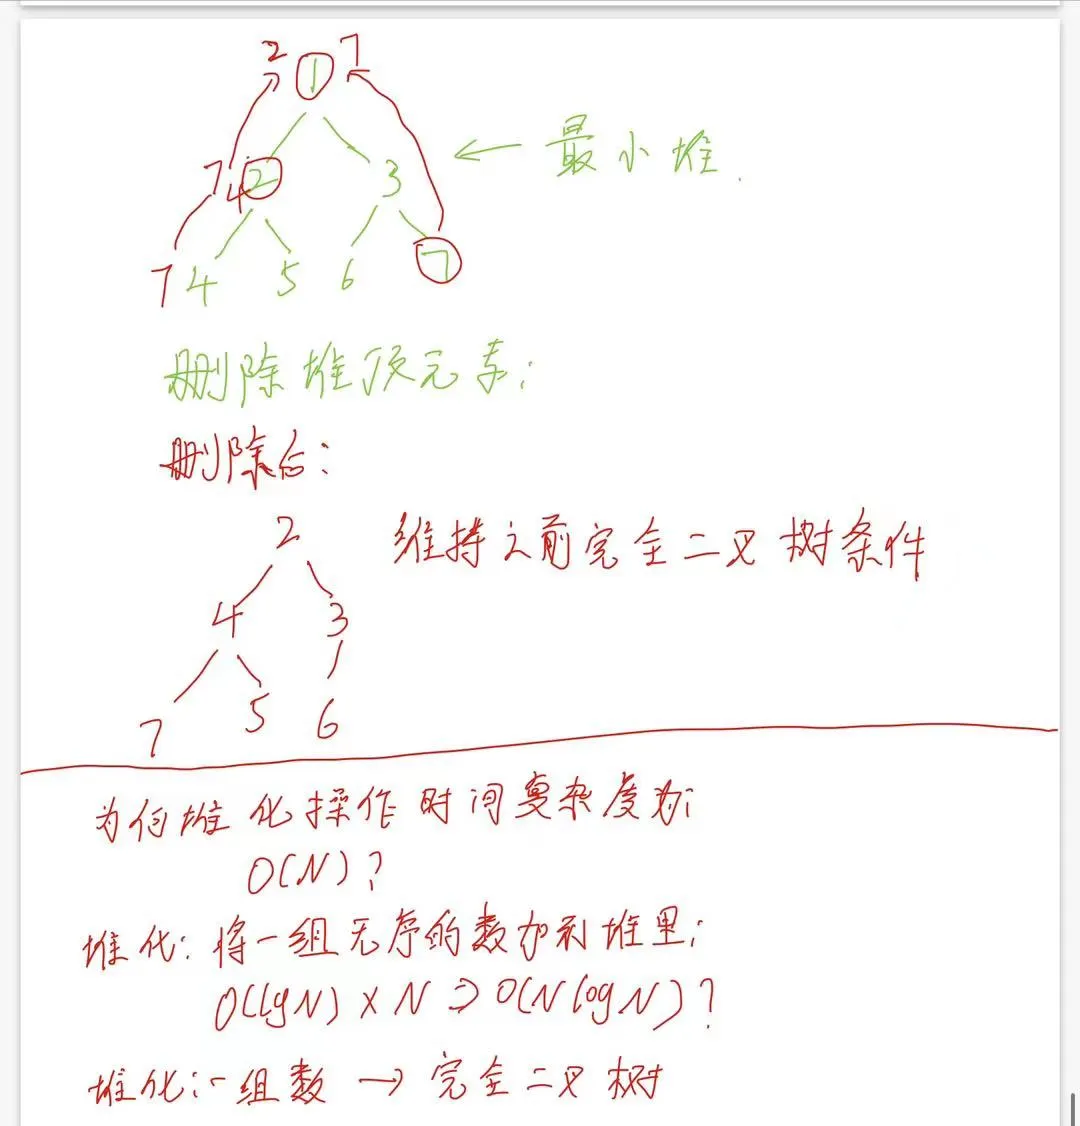 2 1 7
7 4 2 3
← 最小堆.
7 4 5 6 7
删除堆顶元素:
删除后:
2
维持之前完全二叉树条件
4 3
7 5 6
为何堆化操作时间复杂度为:
O(N)?
堆化: 将一组无序的数加到堆里;
O(lgN) × N ⇒ O(NlogN)?
堆化:一组数 → 完全二叉树